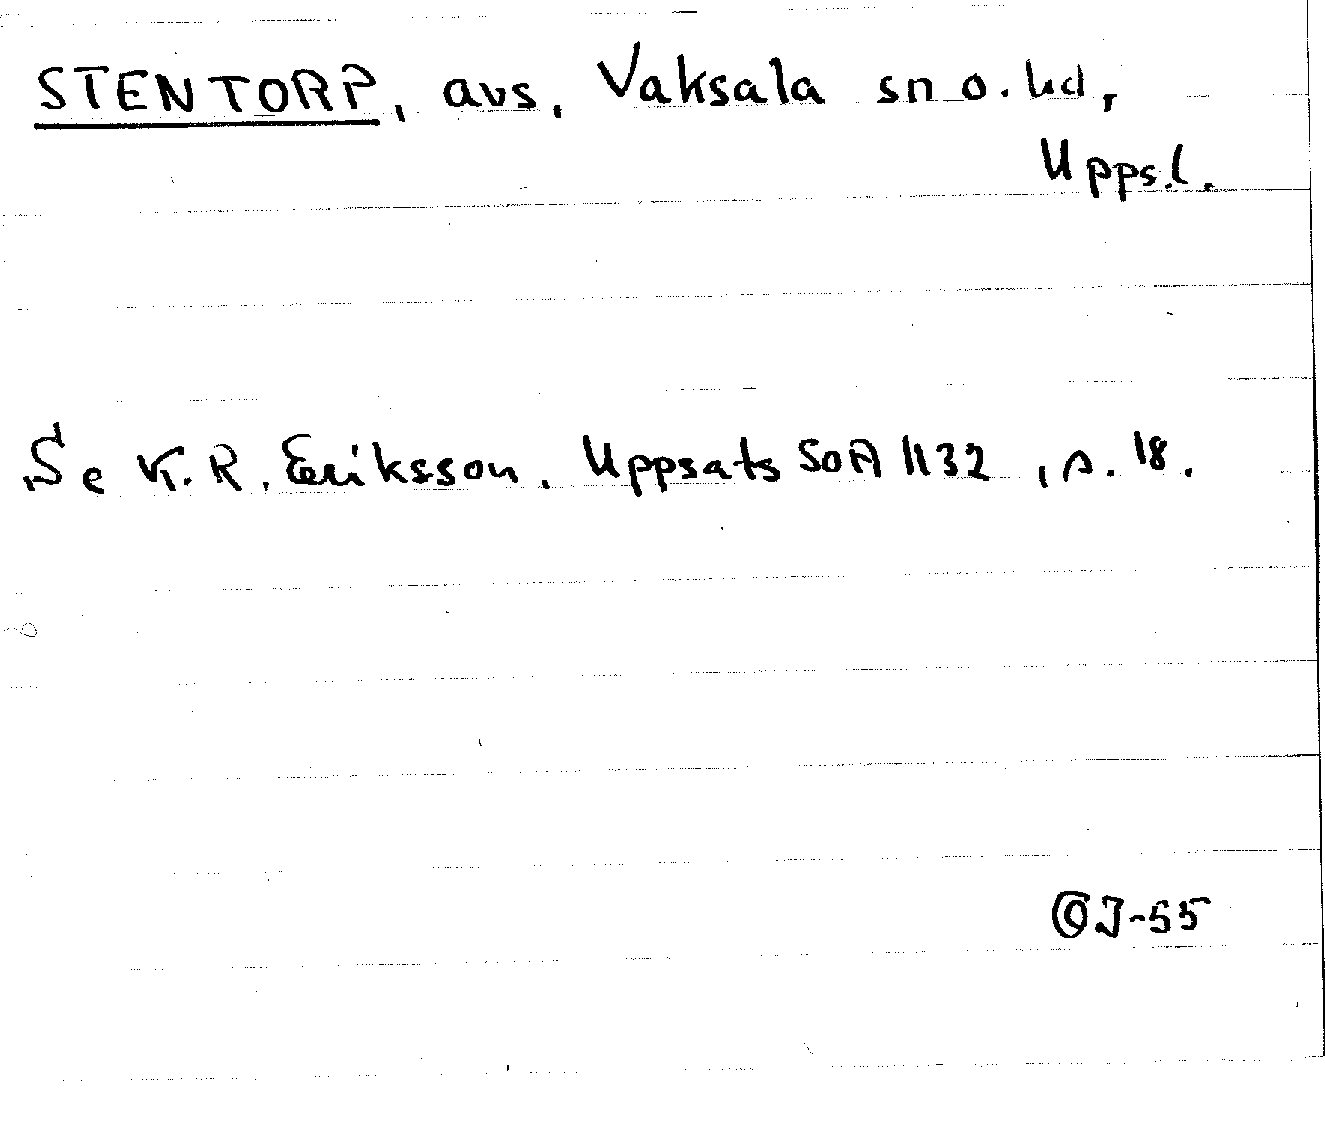 STENTORP, avs, Vaksala sn o. hd,
Upps.l.
Se K.R. Eriksson. Uppsats SOA 1132, s. 18.